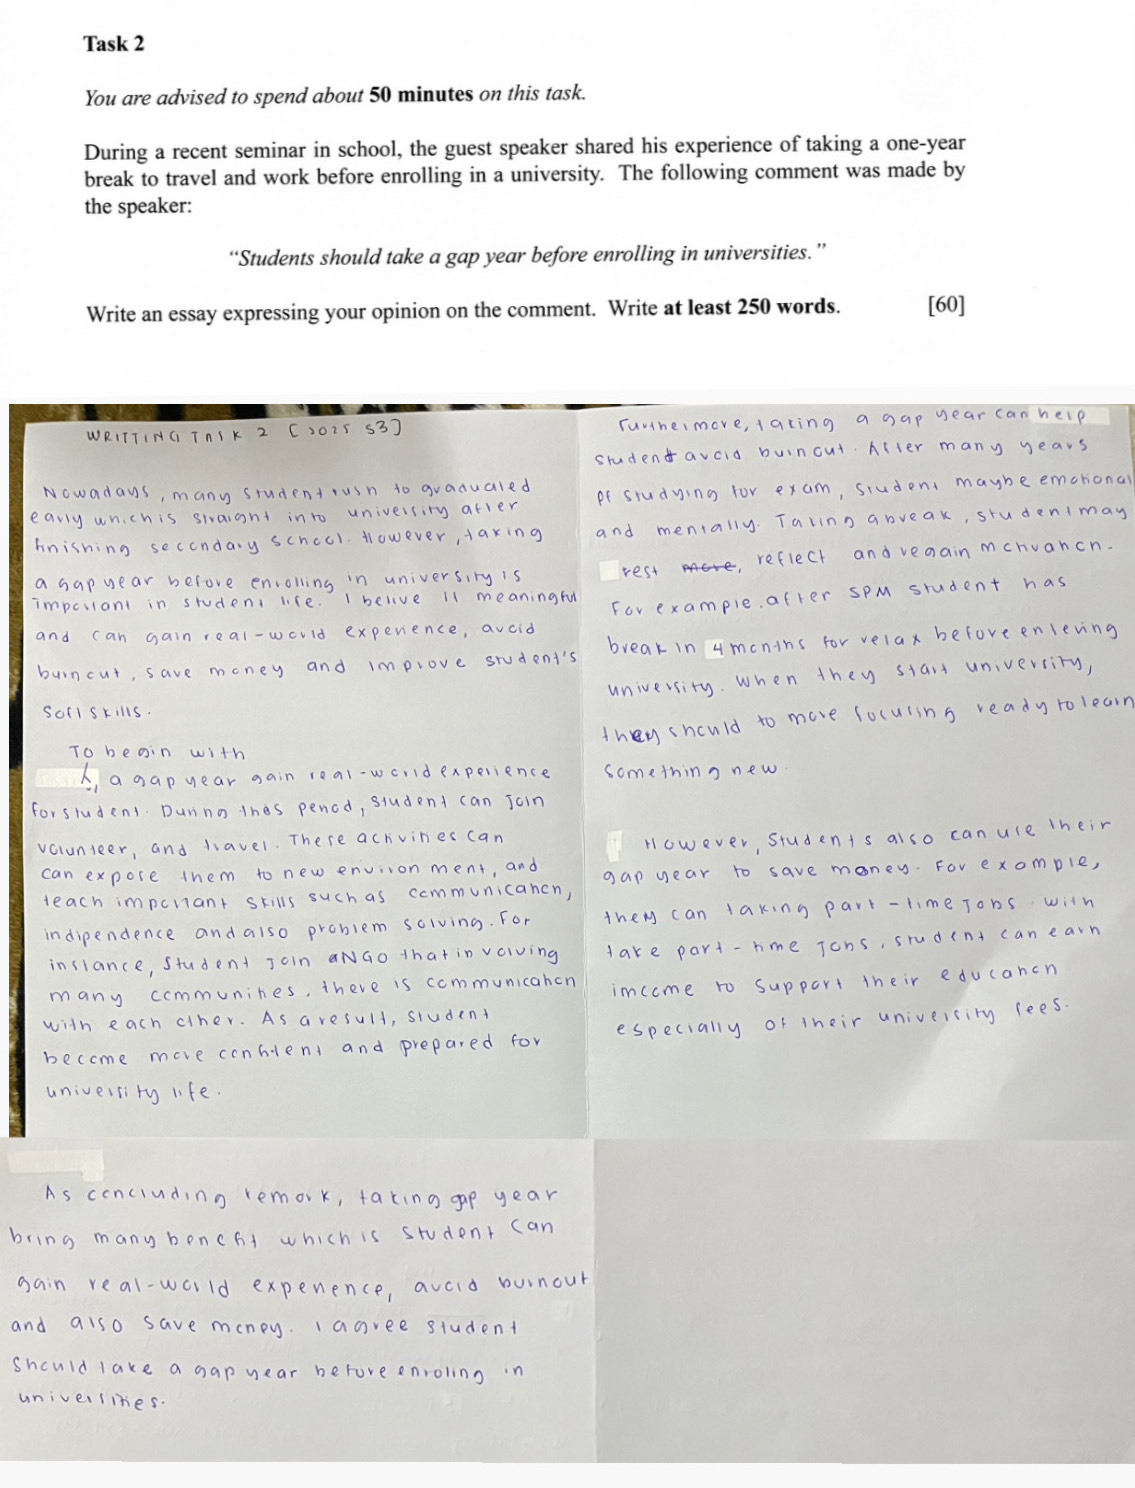 Task 2
You are advised to spend about 50 minutes on this task.
During a recent seminar in school, the guest speaker shared his experience of taking a one-year
break to travel and work before enrolling in a university. The following comment was made by
the speaker:
“Students should take a gap year before enrolling in universities.”
Write an essay expressing your opinion on the comment. Write at least 250 words. [60]
WRITTING TASK 2 [2025 S3]
Nowadays, many student rush to graduated
early which is straight into university after
finishing secondary school. However, taking
a gap year before enrolling in university is
important in student life. I belive it meaningful
and can gain real-world experience, avoid
burnout, save money and improve student's
soft skills.
To begin with
, a gap year gain real-world experience
for student. During this period, student can join
volunteer, and travel. These activities can
can expose them to new environment, and
teach important skills such as communication,
indipendence and also problem solving. For
instance, student join a NGO that involving
many communities, there is communication
with each other. As a result, student
become more confident and prepared for
university life.
Furthermore, taking a gap year can help
student avoid burnout. After many years
of studying for exam, student maybe emotional
and mentally. Taking a break, student may
rest more, reflect and regain motivation.
For example, after SPM student has
break in 4 months for relax before entering
university. When they start university,
they should to more focusing ready to learn
something new.
However, students also can use their
gap year to save money. For example,
they can taking part-time jobs. With
take part-time jobs, student can earn
income to support their education
especially of their university fees.
As concluding remark, taking gap year
bring many benefit which is student can
gain real-world experience, avoid burnout
and also save money. I agree student
should take a gap year before enroling in
universities.